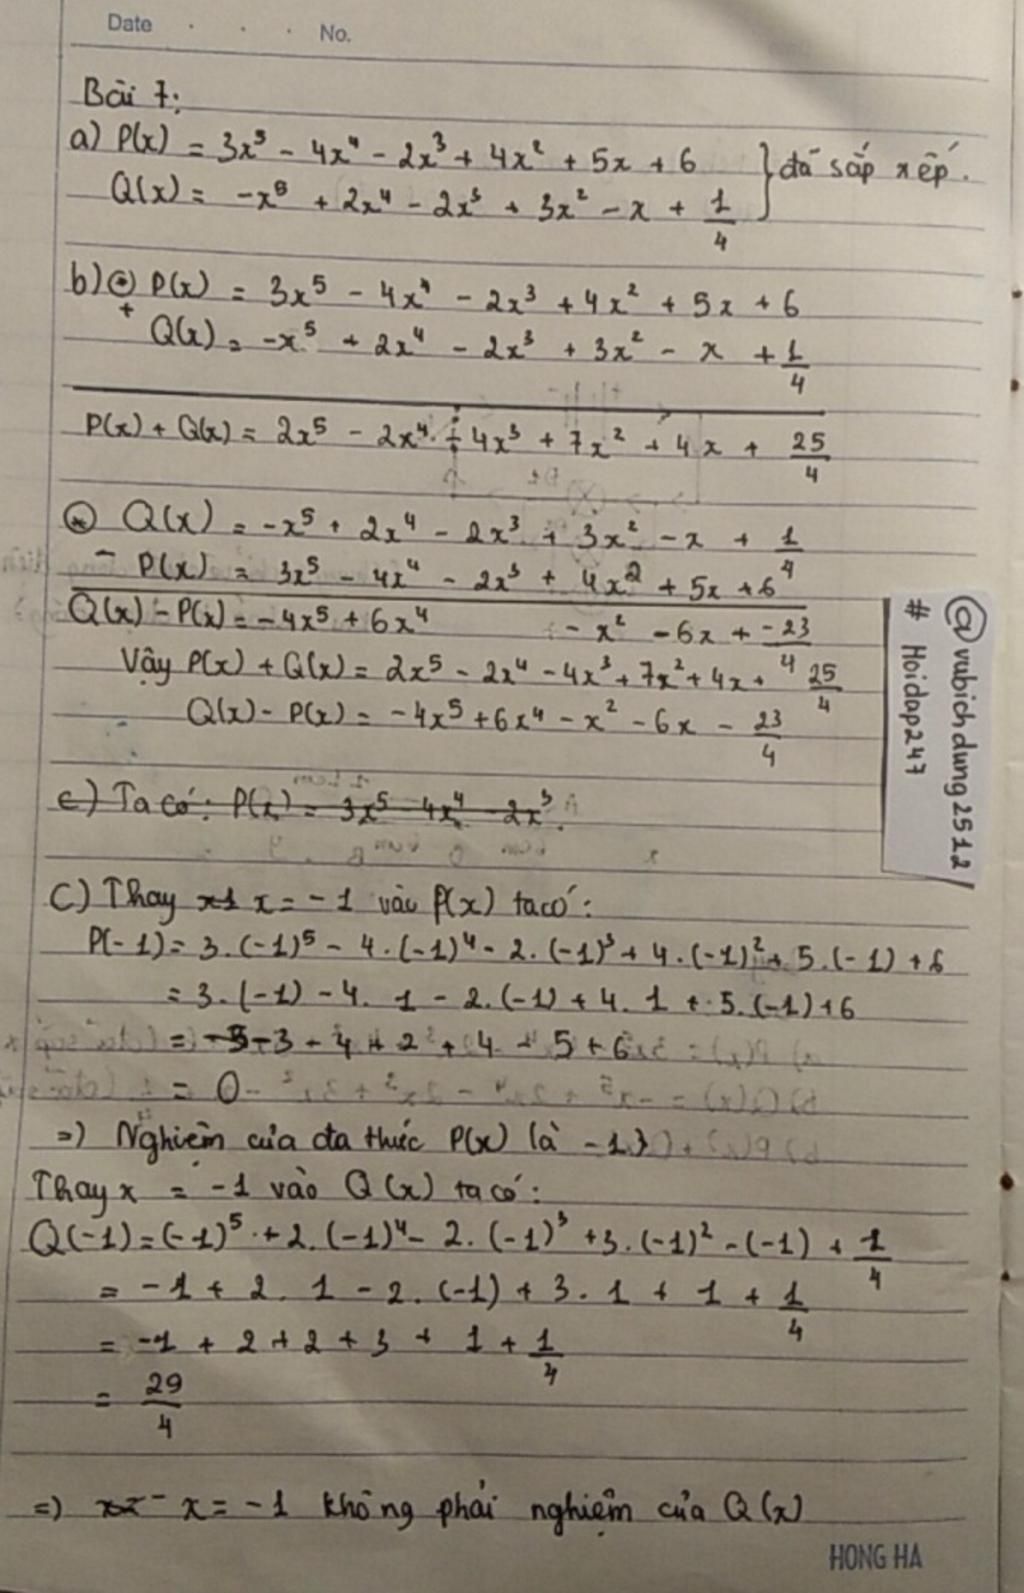 Date . . . No.
Bài 7:
a) P(x) = 3x⁵ - 4x⁴ - 2x³ + 4x² + 5x + 6 } đã sắp xếp.
Q(x) = -x⁵ + 2x⁴ - 2x³ + 3x² - x + 1/4
b) ⊛ P(x) = 3x⁵ - 4x⁴ - 2x³ + 4x² + 5x + 6
+ Q(x) = -x⁵ + 2x⁴ - 2x³ + 3x² - x + 1/4
P(x) + Q(x) = 2x⁵ - 2x⁴ - 4x³ + 7x² + 4x + 25/4
⊛ Q(x) = -x⁵ + 2x⁴ - 2x³ + 3x² - x + 1/4
- P(x) = 3x⁵ - 4x⁴ - 2x³ + 4x² + 5x + 6
Q(x) - P(x) = -4x⁵ + 6x⁴ - x² - 6x + -23/4
Vậy P(x) + Q(x) = 2x⁵ - 2x⁴ - 4x³ + 7x² + 4x + 25/4
Q(x) - P(x) = -4x⁵ + 6x⁴ - x² - 6x - 23/4
@vubichdung2512
# Hoidap247
c) Ta có: P(x) = 3x⁵ - 4x⁴ - 2x³.
C) Thay x = -1 vào P(x) ta có:
P(-1) = 3.(-1)⁵ - 4.(-1)⁴ - 2.(-1)³ + 4.(-1)² + 5.(-1) + 6
= 3.(-1) - 4. 1 - 2.(-1) + 4. 1 + 5.(-1) + 6
= -3 - 4 + 2 + 4 - 5 + 6
= 0
=) Nghiệm của đa thức P(x) là -1
Thay x = -1 vào Q(x) ta có:
Q(-1) = (-1)⁵ + 2.(-1)⁴ - 2.(-1)³ + 3.(-1)² - (-1) + 1/4
= -1 + 2. 1 - 2.(-1) + 3. 1 + 1 + 1/4
= -1 + 2 + 2 + 3 + 1 + 1/4
= 29/4
=) x = -1 không phải nghiệm của Q(x)
HONG HA